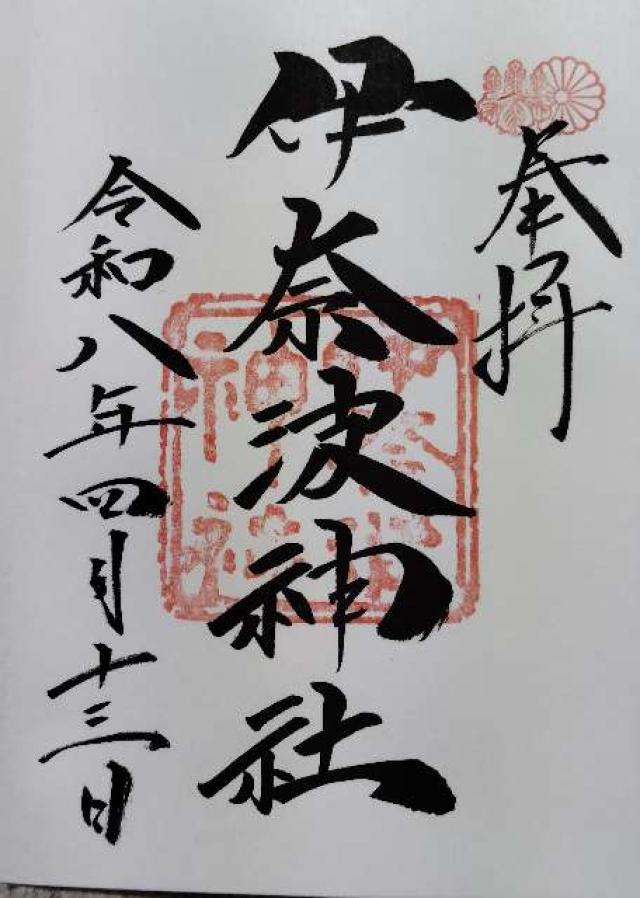 奉拝
伊奈波神社
令和八年四月十三日